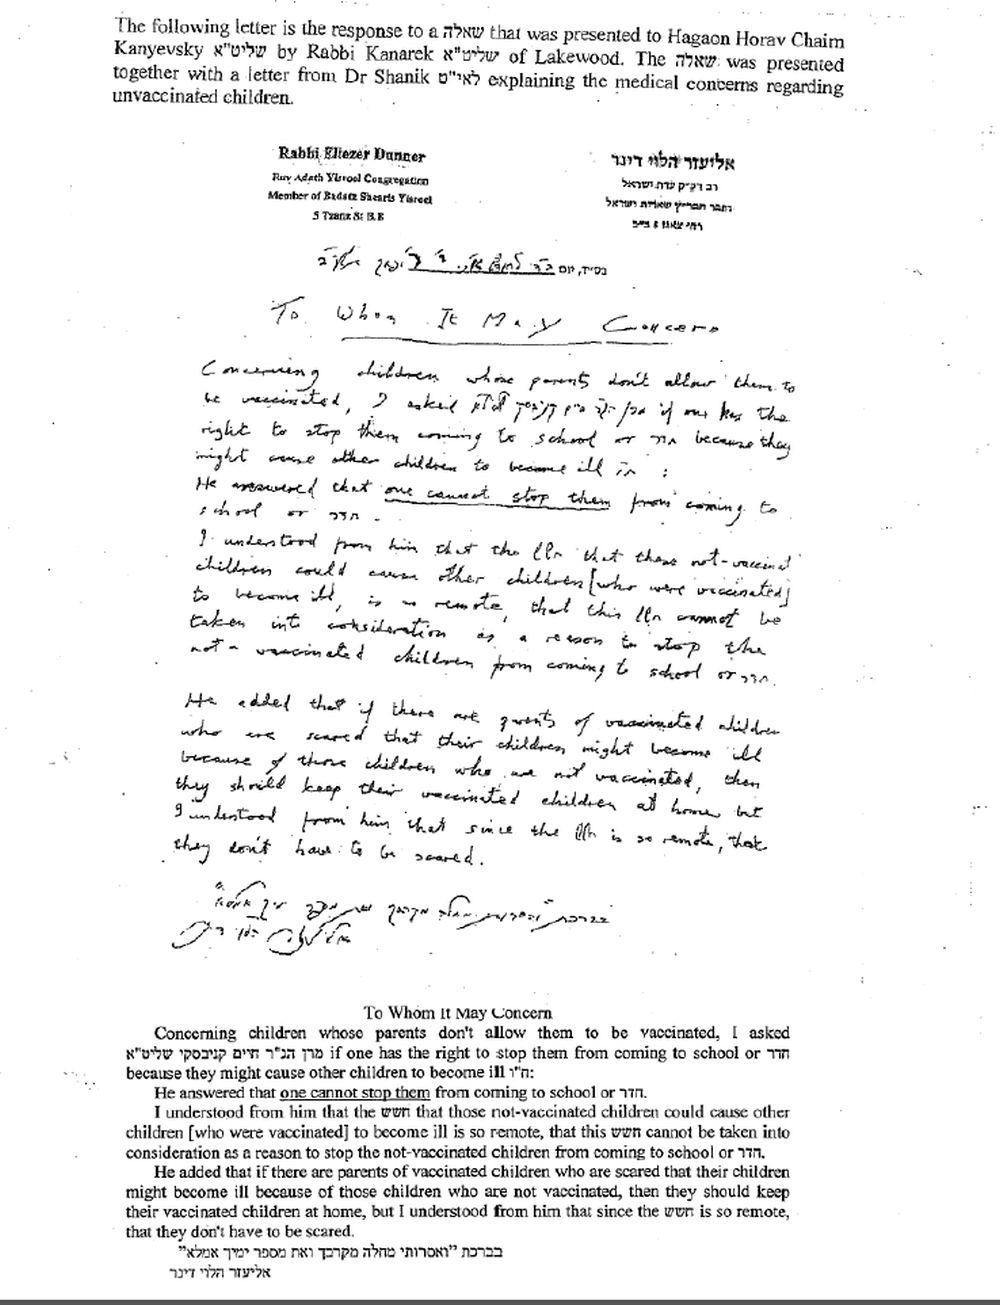 The following letter is the response to a שאלה that was presented to Hagaon Horav Chaim
Kanyevsky שליט"א by Rabbi Kanarek שליט"א of Lakewood. The שאלה was presented
together with a letter from Dr Shanik לאי"ט explaining the medical concerns regarding
unvaccinated children.
Rabbi Eliezer Dunner
Ruv Adath Yisroel Congregation
Member of Badatz Shearis Yisroel
5 Tzanz St B.B
אליעזר הלוי דינר
רב דק"ק עדת ישראל
רחי צאנז 5 ב"ב
בס"ד, יום
To Whom It May Concern
Concerning children whose parents don't allow them to
be vaccinated, I asked מרן if one has the
right to stop them coming to school or חדר because they
might cause other children to become ill :
He answered that one cannot stop them from coming to
school or חדר.
I understood from him that the חשש that those not-vaccinated
children could cause other children [who were vaccinated]
to become ill, is so remote, that this חשש cannot be
taken into consideration as a reason to stop the
not-vaccinated children from coming to school or חדר.
He added that if there are parents of vaccinated children
who are scared that their children might become ill
because of those children who are not vaccinated, then
they should keep their vaccinated children at home but
I understood from him that since the חשש is so remote, that
they don't have to be scared.
To Whom It May Concern
Concerning children whose parents don't allow them to be vaccinated, I asked
מרן הג"ר חיים קניבסקי שליט"א if one has the right to stop them from coming to school or חדר
because they might cause other children to become ill ח"ו:
He answered that one cannot stop them from coming to school or חדר.
I understood from him that the חשש that those not-vaccinated children could cause other
children [who were vaccinated] to become ill is so remote, that this חשש cannot be taken into
consideration as a reason to stop the not-vaccinated children from coming to school or חדר.
He added that if there are parents of vaccinated children who are scared that their children
might become ill because of those children who are not vaccinated, then they should keep
their vaccinated children at home, but I understood from him that since the חשש is so remote,
that they don't have to be scared.
בברכת "ואסרותי מחלה מקרבך ואת מספר ימיך אמלא"
אליעזר הלוי דינר